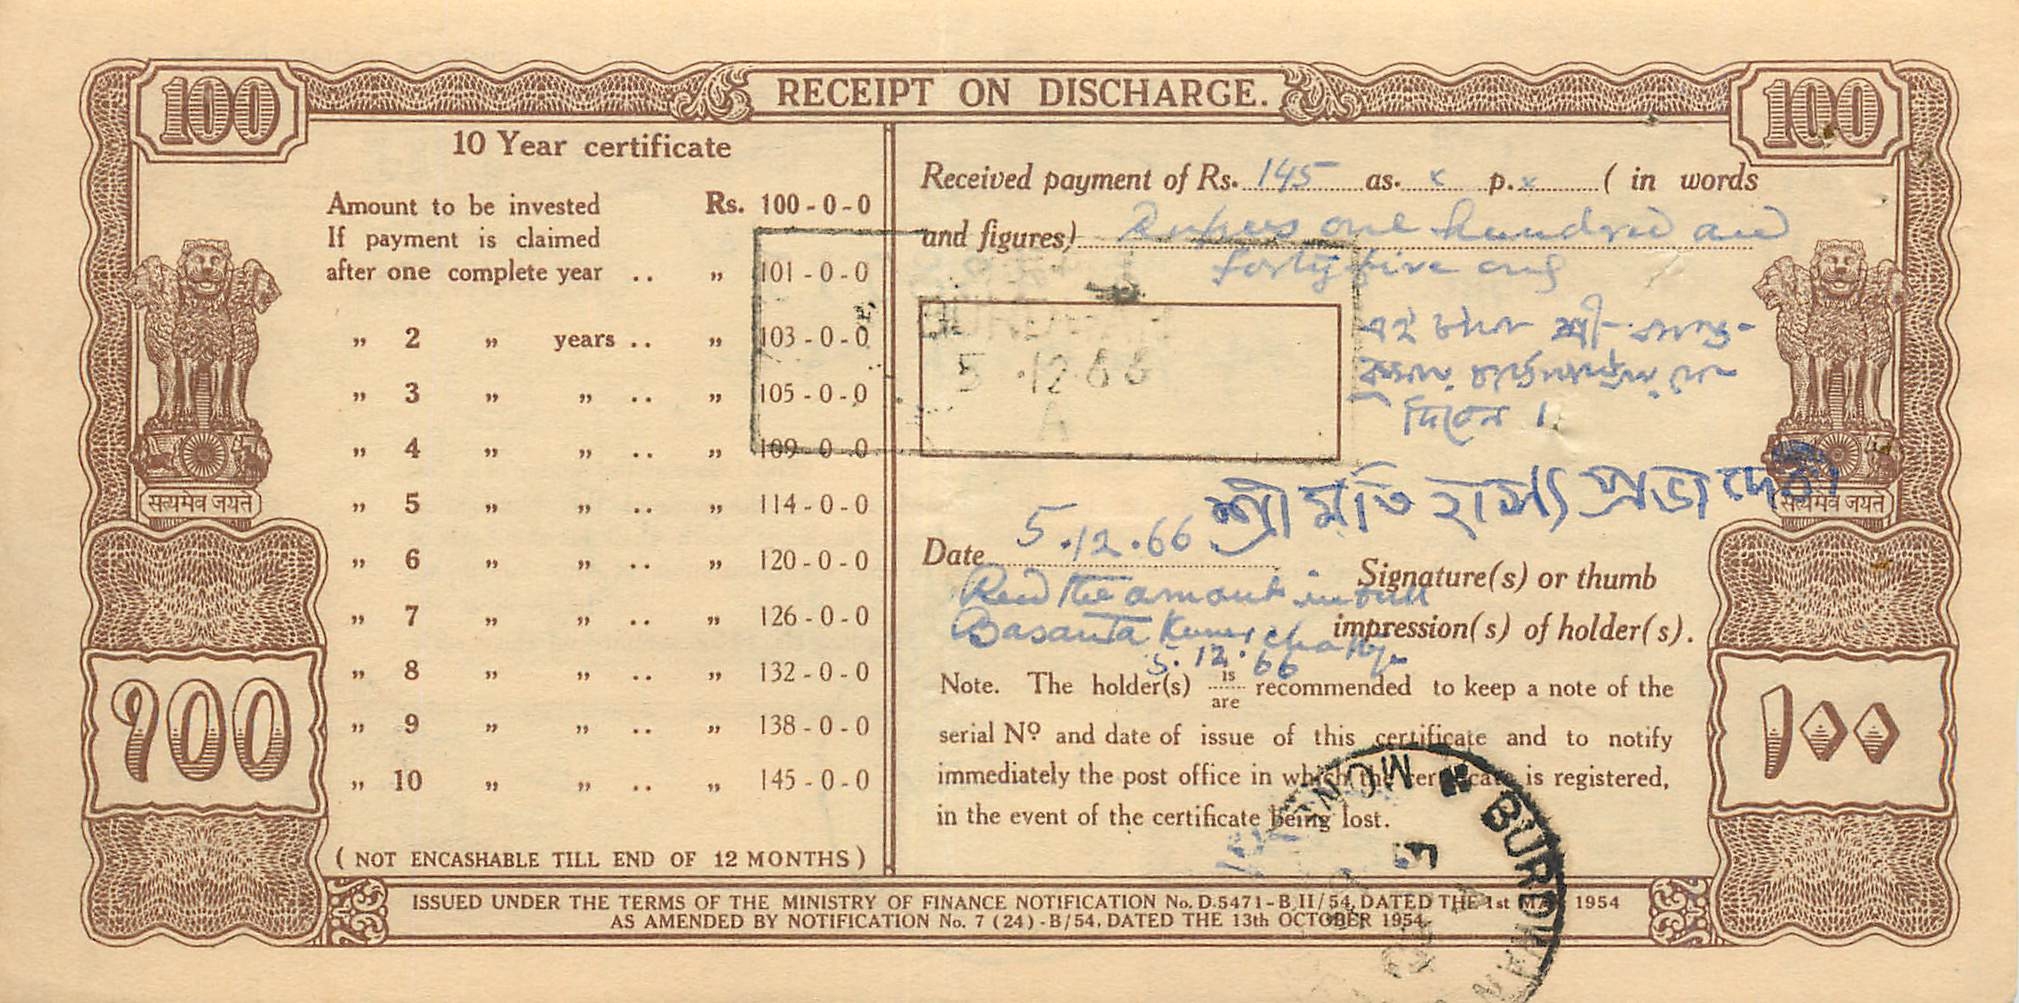 RECEIPT ON DISCHARGE.
100
100
10 Year certificate
Amount to be invested Rs. 100-0-0
If payment is claimed
after one complete year .. „ 101-0-0
„ 2 „ years .. „ 103-0-0
„ 3 „ „ .. „ 105-0-0
„ 4 „ „ .. „ 109-0-0
„ 5 „ „ .. „ 114-0-0
„ 6 „ „ .. „ 120-0-0
„ 7 „ „ .. „ 126-0-0
„ 8 „ „ .. „ 132-0-0
„ 9 „ „ .. „ 138-0-0
„ 10 „ „ .. „ 145-0-0
( NOT ENCASHABLE TILL END OF 12 MONTHS )
सत्यमेव जयते
१००
Received payment of Rs. 145 as. x p. x ( in words
and figures) Rupees one hundred and
forty five only
BURDWAN
5.12.66
A
এই টাকা শ্রী
দিবেন।
শ্রীমতি হাস্য প্রভা দেবী
Date 5.12.66
Signature(s) or thumb
impression(s) of holder(s).
Recd the amount in full
Basanta Kumar
5.12.66
Note. The holder(s) is/are recommended to keep a note of the
serial Nº and date of issue of this certificate and to notify
immediately the post office in which the certificate is registered,
in the event of the certificate being lost.
सत्यमेव जयते
१००
BURDWAN
ISSUED UNDER THE TERMS OF THE MINISTRY OF FINANCE NOTIFICATION No. D.5471-B II/54, DATED THE 1st MAY 1954
AS AMENDED BY NOTIFICATION No. 7 (24)-B/54, DATED THE 13th OCTOBER 1954.